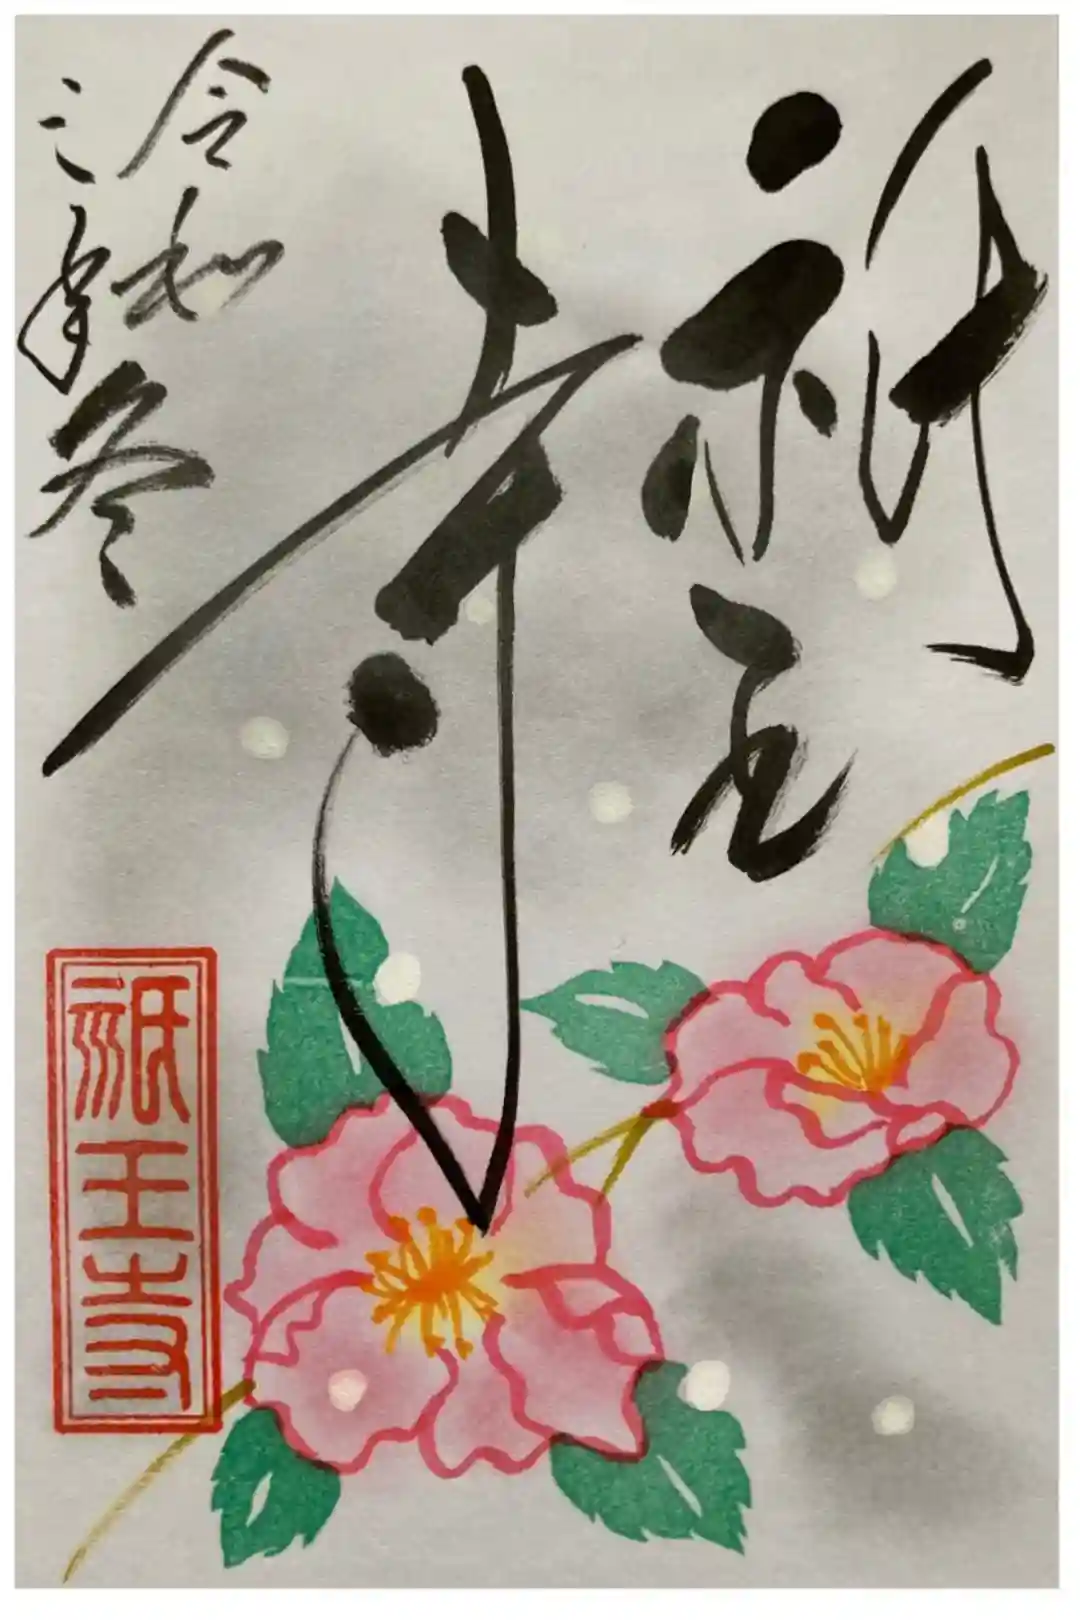 祇王
寺
令和
三年冬
祇王寺